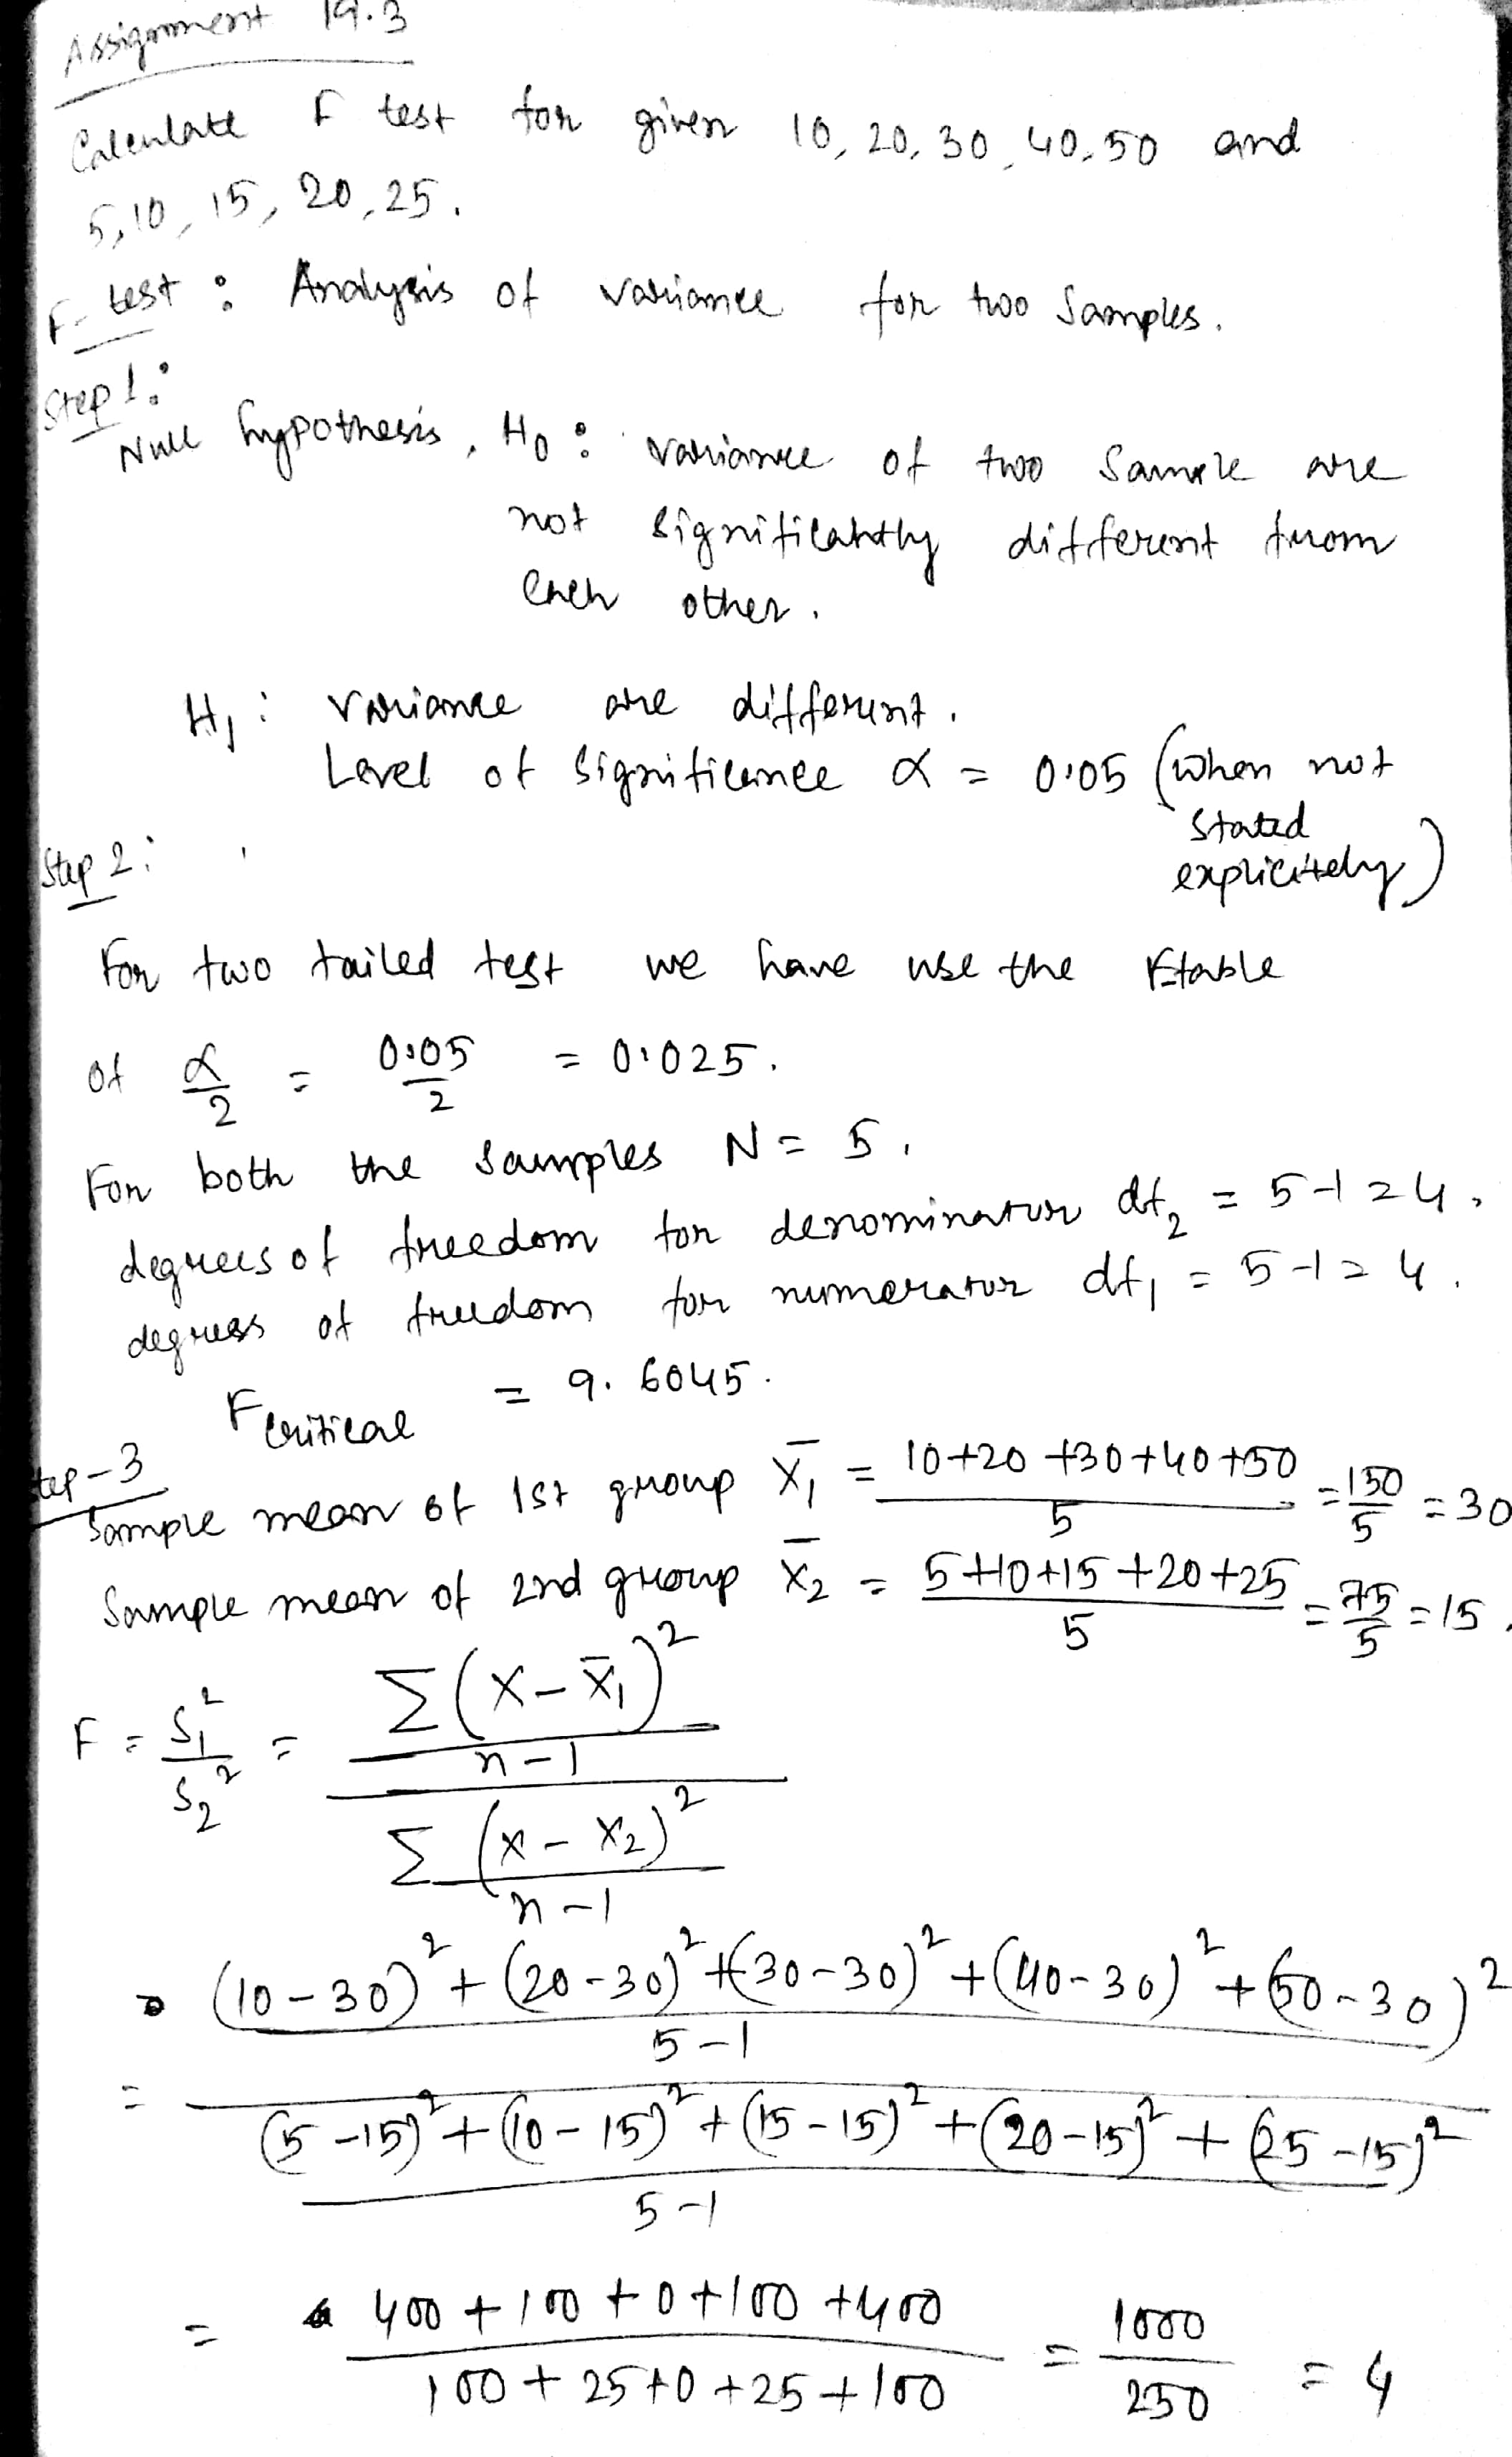 Assignment 19.3
Calculate F test for given 10, 20, 30, 40, 50 and
5, 10, 15, 20, 25.
F-test : Analysis of variance for two samples.
Step 1:
Null hypothesis, H₀ : variance of two sample are
not significantly different from
each other.
H₁ : variance are different.
Level of significance α = 0.05 (when not
stated
explicitely)
Step 2:
For two tailed test we have use the F-table
of α/2 = 0.05/2 = 0.025.
For both the samples N = 5.
degrees of freedom for denominator df₂ = 5-1 = 4,
degrees of freedom for numerator df₁ = 5-1 = 4.
F critical = 9.6045.
Step-3
Sample mean of 1st group X̄₁ = (10+20+30+40+50)/5 = 150/5 = 30
Sample mean of 2nd group X̄₂ = (5+10+15+20+25)/5 = 75/5 = 15.
F = S₁²/S₂² = (Σ(X-X̄₁)²/(n-1)) / (Σ(X-X₂)²/(n-1))
= (((10-30)² + (20-30)² + (30-30)² + (40-30)² + (50-30)²)/(5-1)) / (((5-15)² + (10-15)² + (15-15)² + (20-15)² + (25-15)²)/(5-1))
= (400+100+0+100+400)/(100+25+0+25+100) = 1000/250 = 4